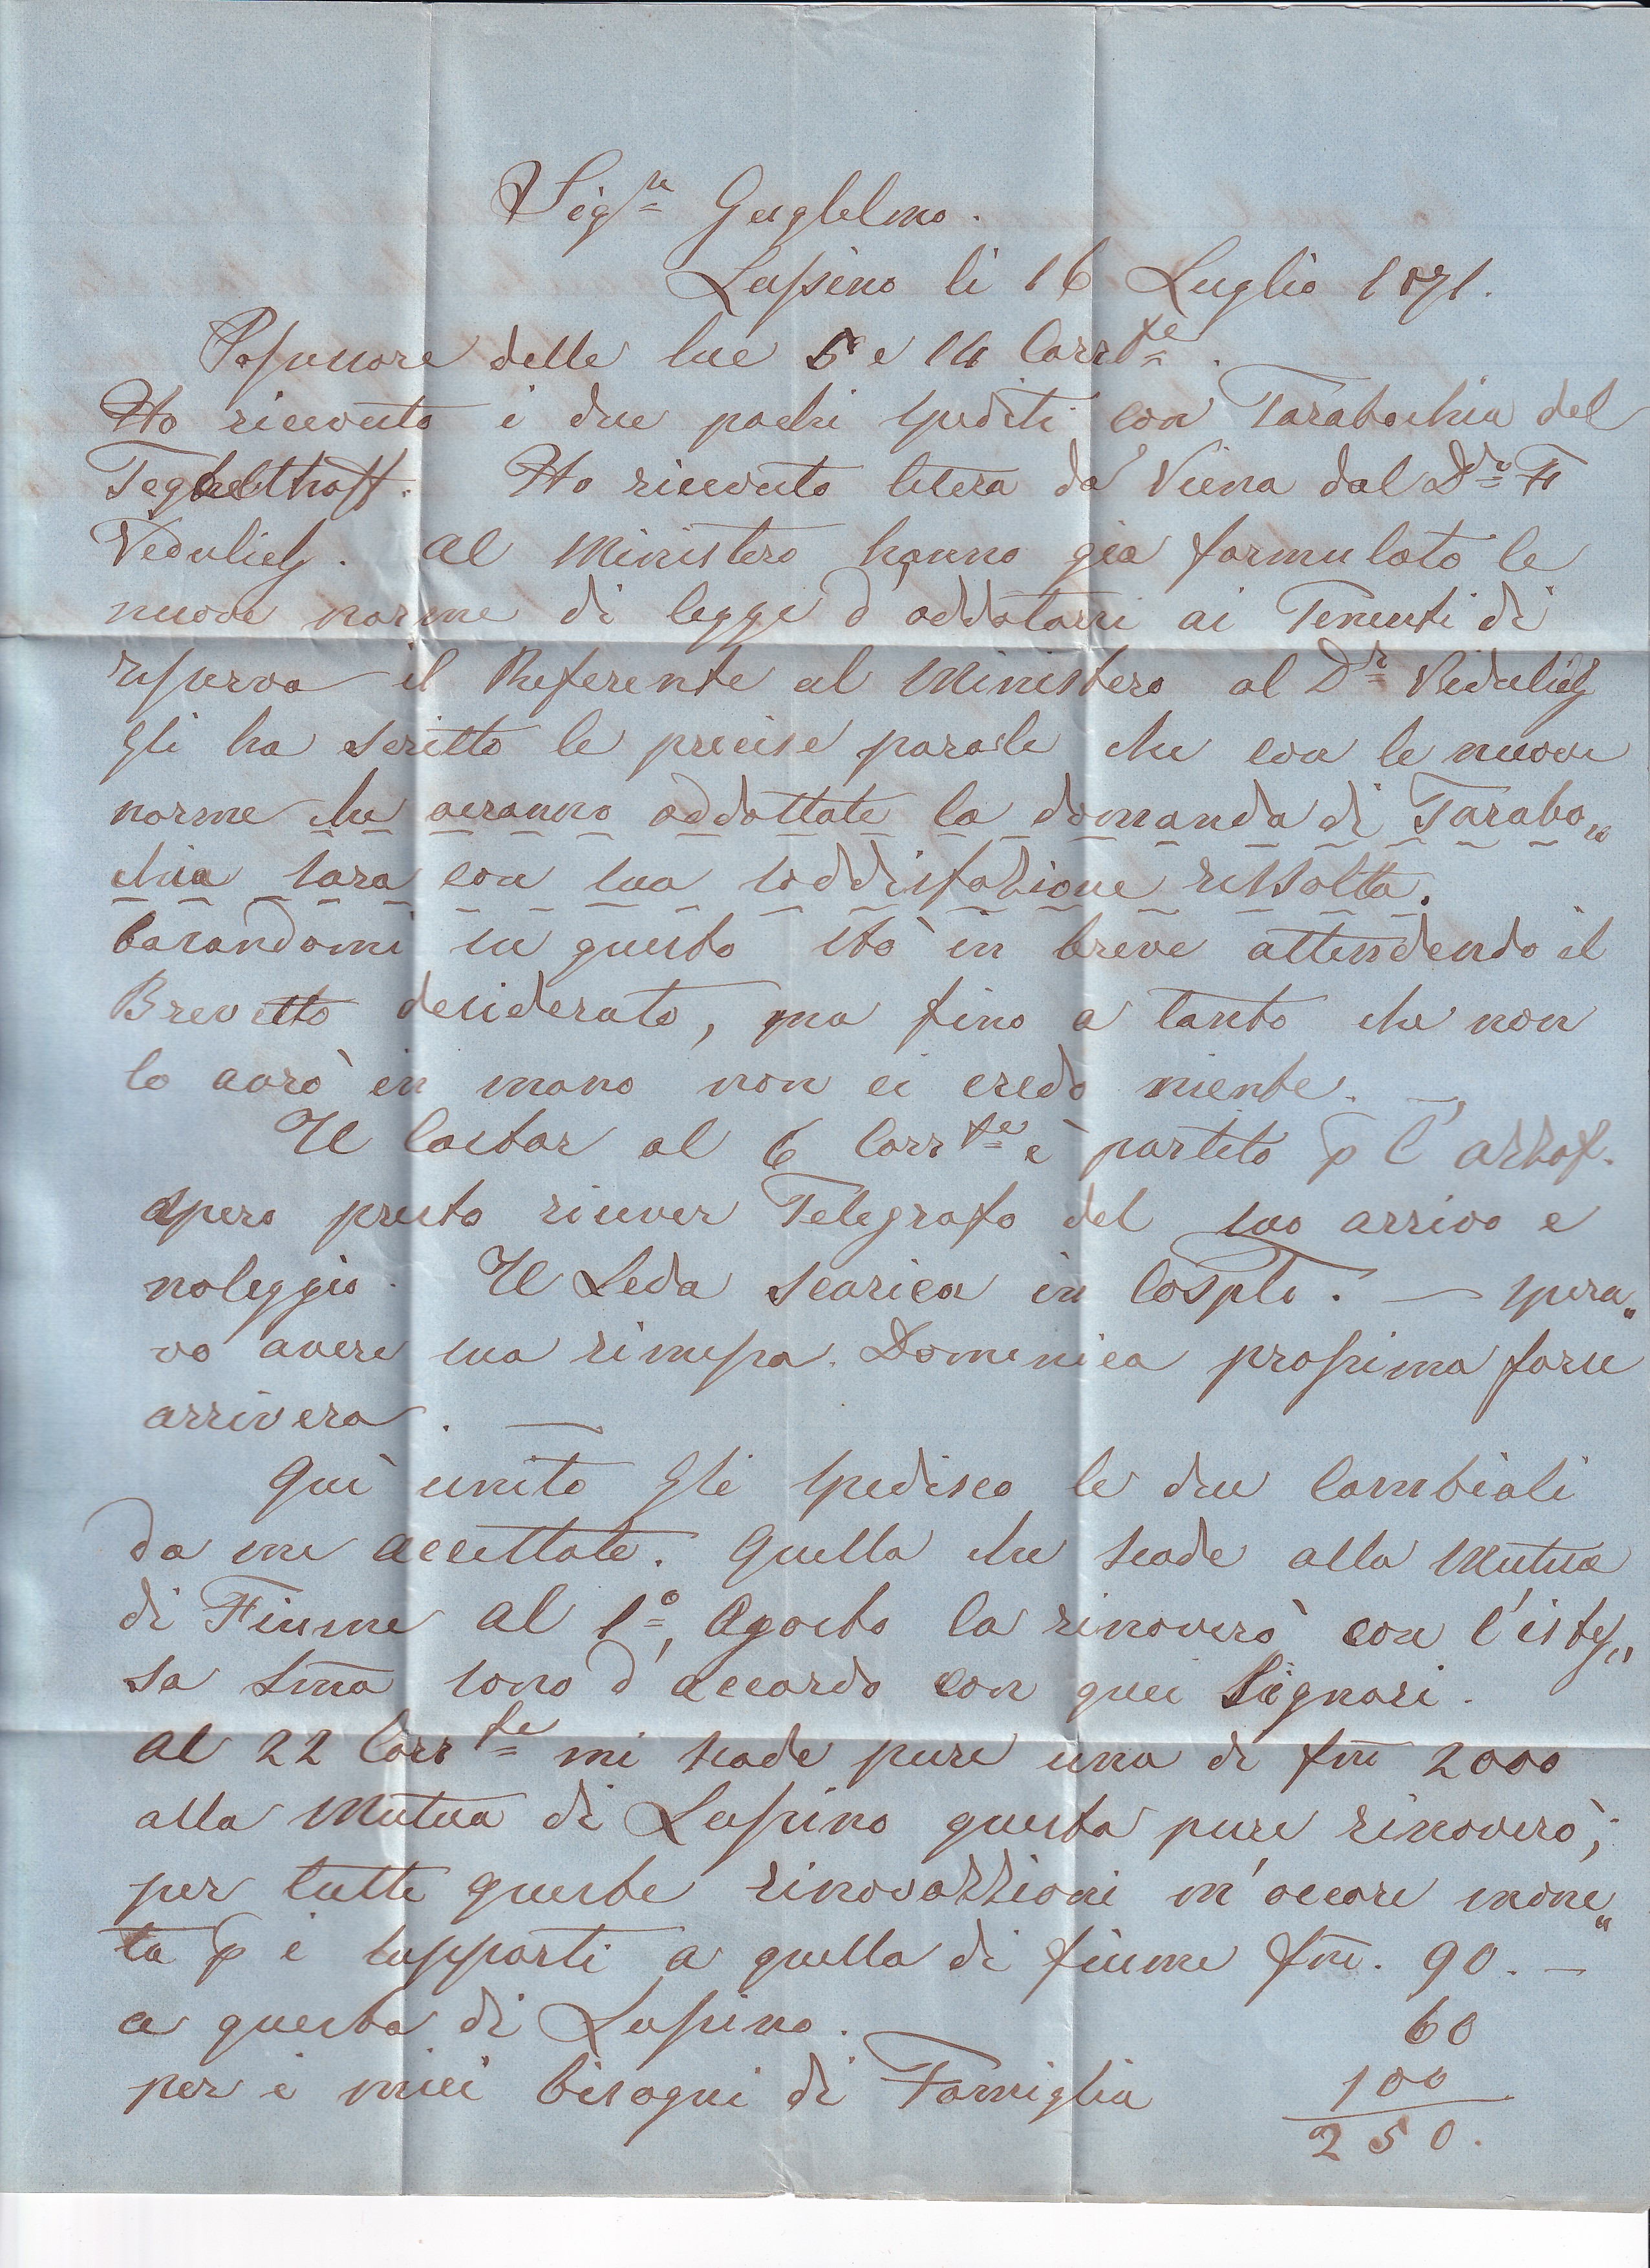 Sigre Guglelmo.
Lussino li 16 Luglio 1871.
Possessore delle sue 5 e 14 Corrte.
Ho ricevuto i due pachi spediti con Tarabochia del
Teghelthoff. Ho ricevuto letera da Viena dal Dr. F
Vidulich. Al Ministero hanno già formulato le
nuove norme di legge d'addotarsi ai Tenenti di
riserva il Referente al Ministero al Dr Vidulich
gli ha scritto le precise parole che con le nuove
norme che veranno addottate la domanda di Tarabo„
chia sara con sua soddisfazione rissolta.
basandomi su questo stò in breve attendendo il
Brevetto desiderato, ma fino a tanto che non
lo avrò in mano non ci credo niente. —
Il Castor al 6 Corrte è partito p l'Azzof.
spero presto ricever Telegrafo del suo arrivo e
noleggio. Il Leda scarica in Cosplo. — spera„
vo avere sua rimessa. Domenica prossima forse
arrivera. —
Quì unito gli spedisco le due Cambiali
da me accettate. Quella che scade alla Mutua
di Fiume al 1º Agosto la rinoverò con l'istes„
sa sma sono d'accordo con quei Signori.
al 22 Corrte mi scade pure una di fni 2000
alla Mutua di Lussino questa pure rinoverò;
per tutte queste rinovazzioni m'occore mone„
ta p i supporti a quella di fiume fni. 90. —
a questa di Lussino. 60
per i miei bisogni di Famiglia 100
250.